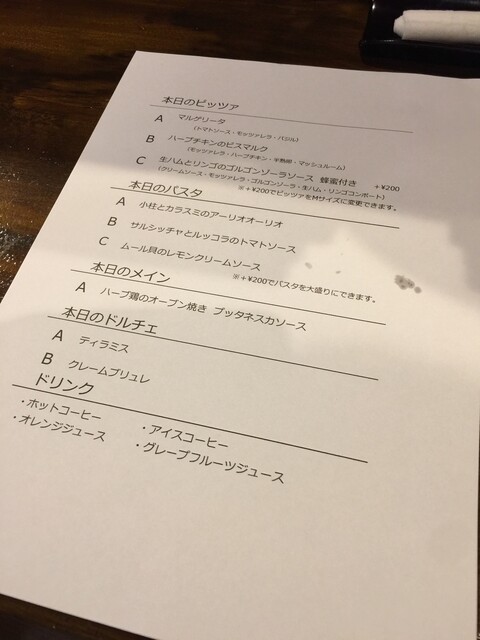 本日のピッツァ
A マルゲリータ
(トマトソース・モッツァレラ・バジル)
B ハーブチキンのビスマルク
(モッツァレラ・ハーブチキン・半熟卵・マッシュルーム)
C 生ハムとリンゴのゴルゴンゾーラソース 蜂蜜付き +¥200
(クリームソース・モッツァレラ・ゴルゴンゾーラ・生ハム・リンゴコンポート)
※+¥200でピッツァをMサイズに変更できます。
本日のパスタ
A 小柱とカラスミのアーリオオーリオ
B サルシッチャとルッコラのトマトソース
C ムール貝のレモンクリームソース
※+¥200でパスタを大盛りにできます。
本日のメイン
A ハーブ鶏のオーブン焼き プッタネスカソース
本日のドルチェ
A ティラミス
B クレームブリュレ
ドリンク
・ホットコーヒー ・アイスコーヒー
・オレンジジュース ・グレープフルーツジュース